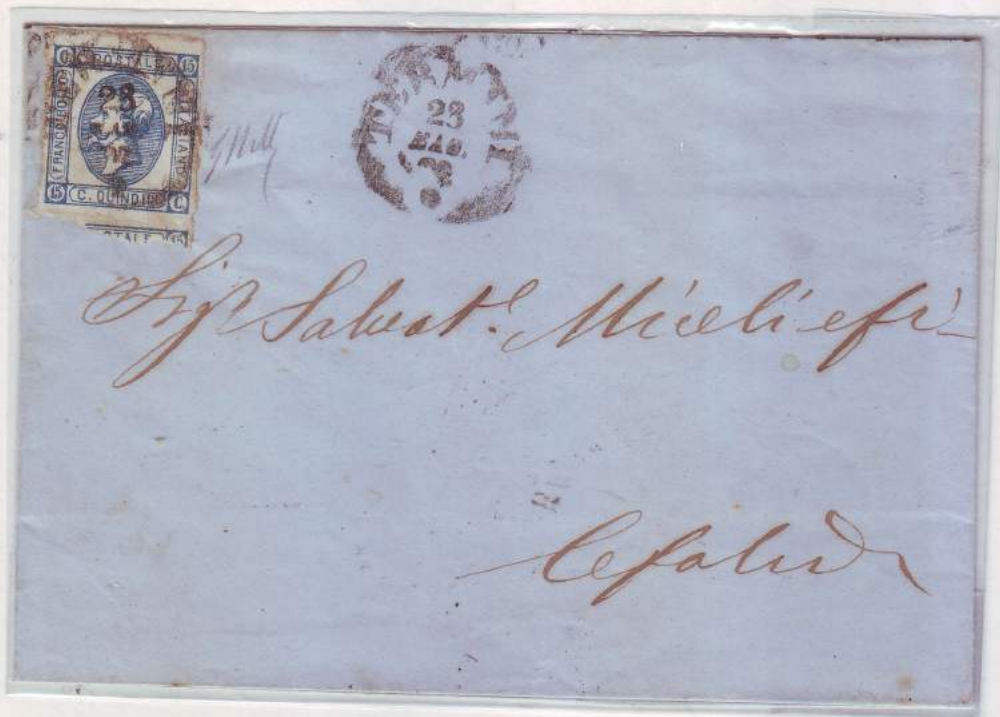 C. POSTALE 15
FRANCO BOLLO
ITALIANO
23
15 C. QUINDICI C.
STALE 15
23
MAG.
Sigr Salvat.e Miceli e fi
Cefalù